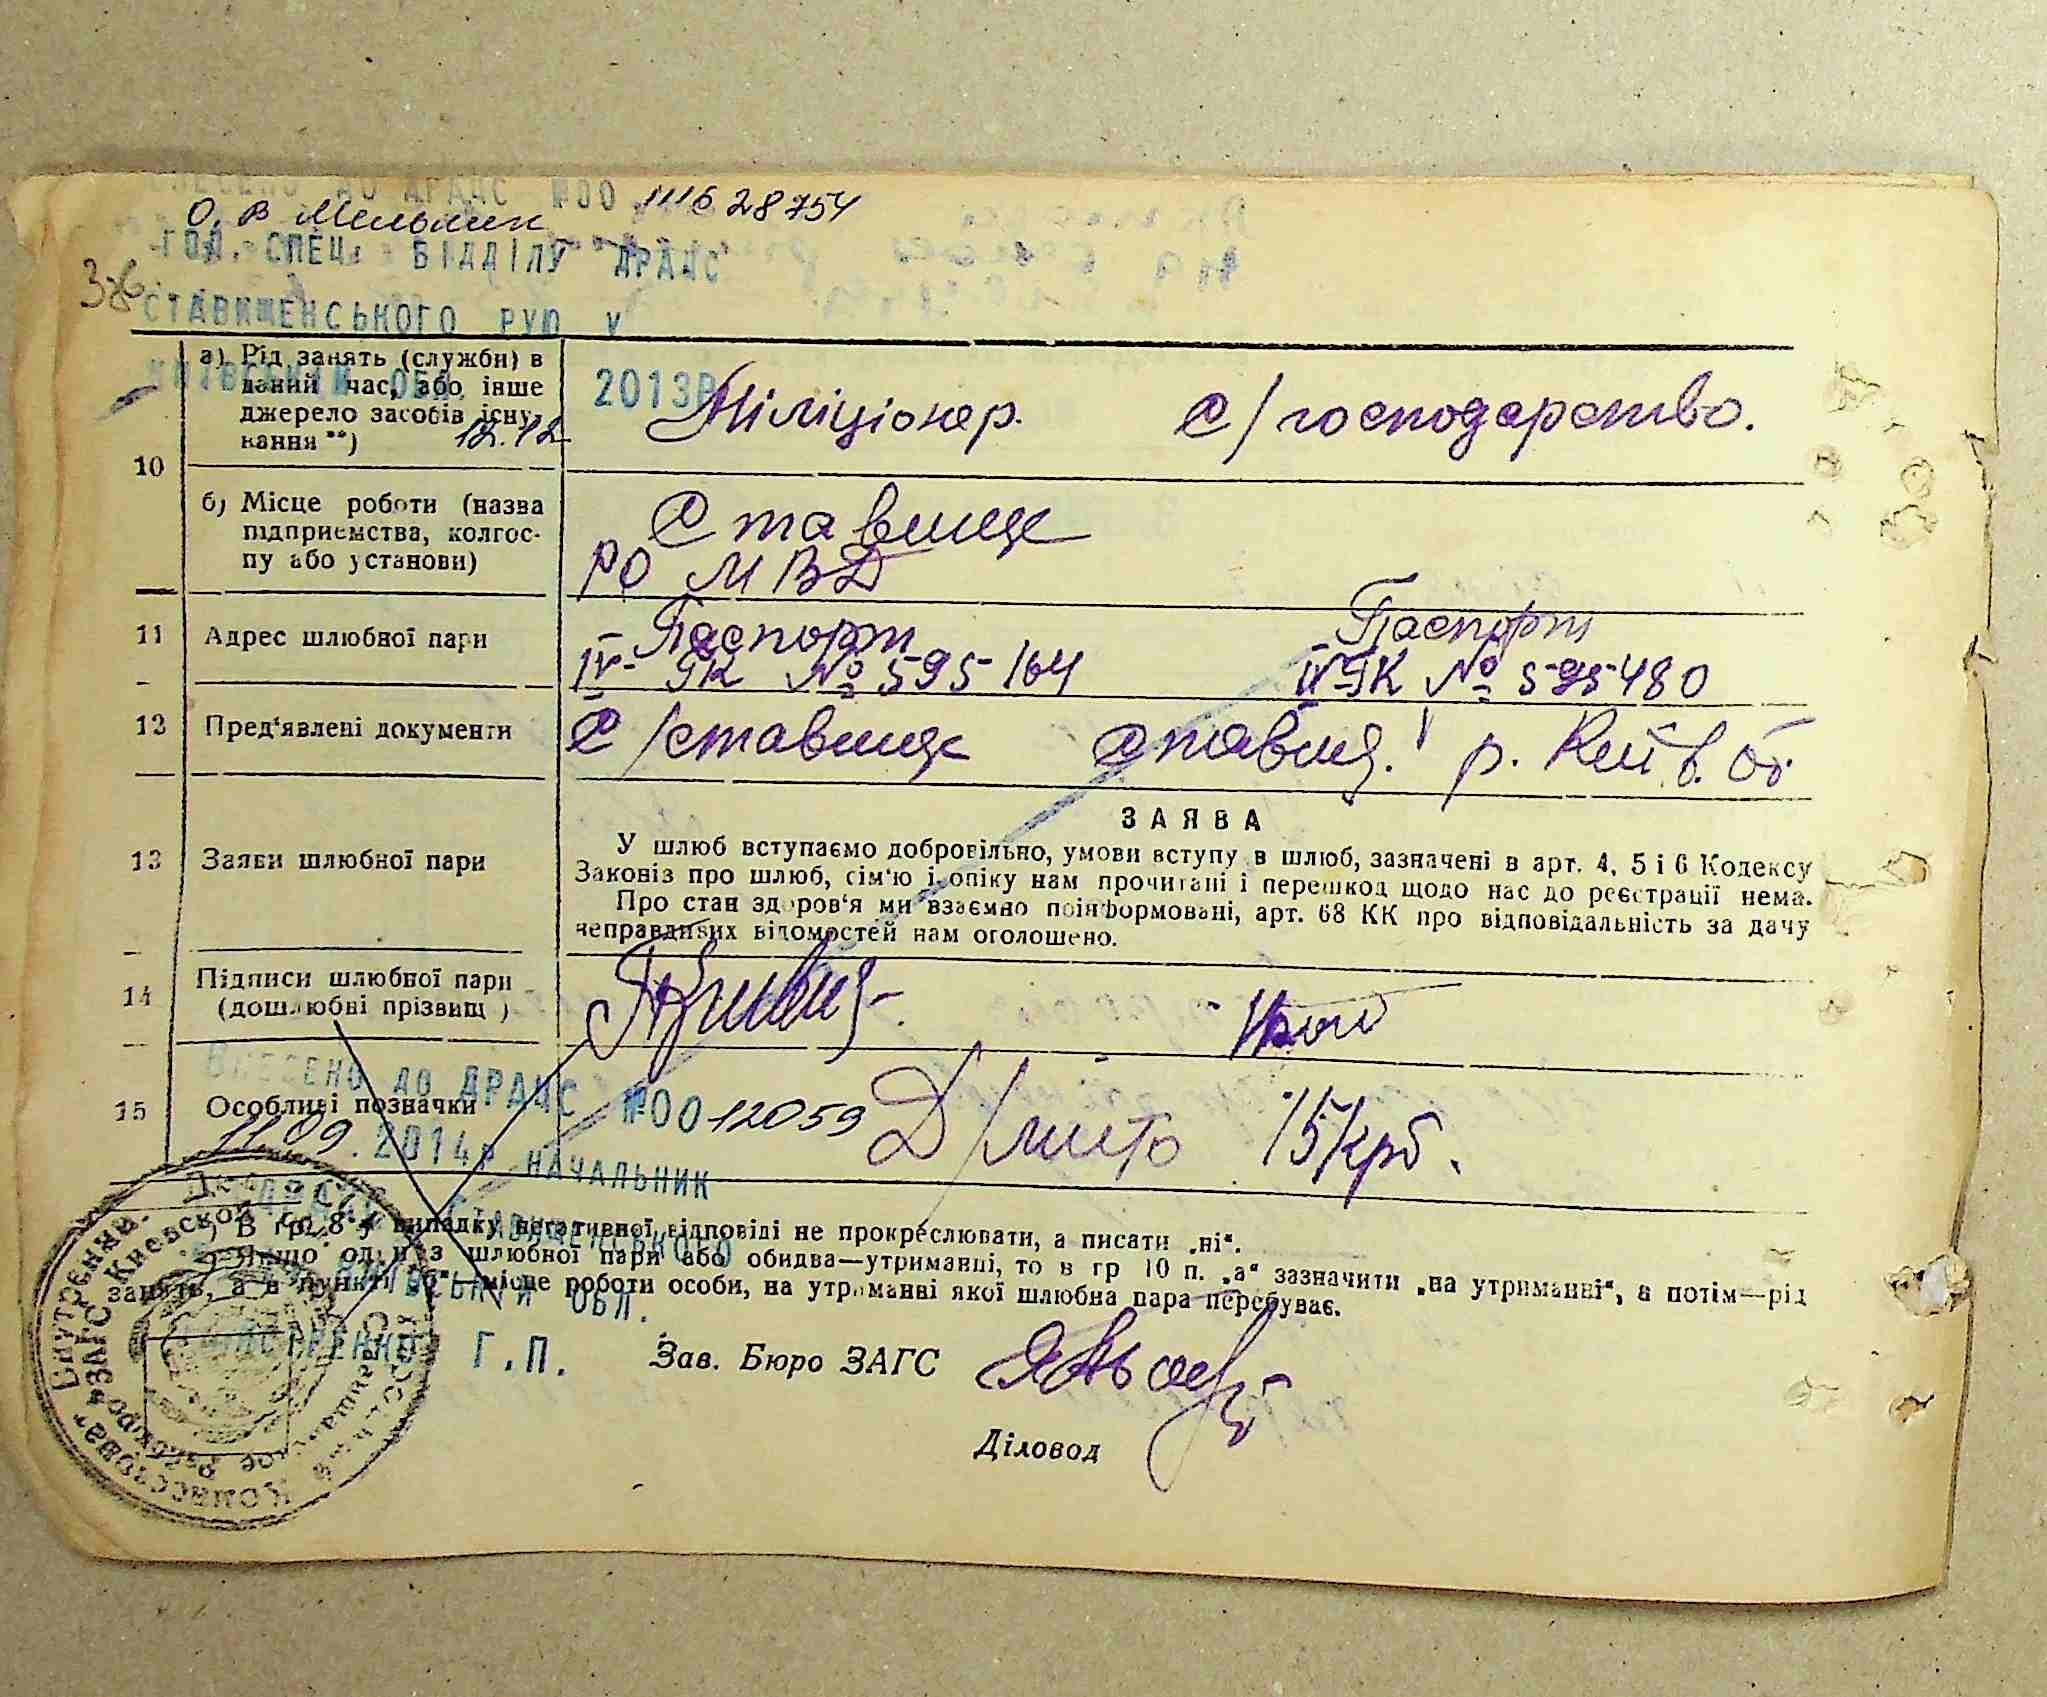 ВНЕСЕНО ДО ДРАЦС №00 11628754
О. В Мельник
ГОЛ. СПЕЦ. ВІДДІЛУ ДРАЦС
376.
СТАВИЩЕНСЬКОГО РУЮ У
КИЇВСЬКІЙ ОБЛ. 2013Р
12.12
10 а) Рід занять (служби) в
даний час, або інше
джерело засобів існу-
вання **)
Міліціонер. С/господарство.
б) Місце роботи (назва
підприємства, колгос-
пу або установи)
Ставище
РО МВД
11 Адрес шлюбної пари
Паспорт Паспорт
IV-ГК № 595164 IV-ГК № 595480
12 Пред'явлені документи
С/Ставище Ставищ. р. Київ. об.
13 Заяви шлюбної пари
ЗАЯВА
У шлюб вступаємо добровільно, умови вступу в шлюб, зазначені в арт. 4, 5 і 6 Кодексу
Законів про шлюб, сім'ю і опіку нам прочитані і перешкод щодо нас до реєстрації нема.
Про стан здоров'я ми взаємно поінформовані, арт. 68 КК про відповідальність за дачу
неправдивих відомостей нам оголошено.
14 Підписи шлюбної пари
(дошлюбні прізвищ )
ВНЕСЕНО ДО ДРАЦС №00 12059
15 Особливі позначки
Д/мито 15 крб.
11.09.2014р НАЧАЛЬНИК
СТАВИЩЕНСЬКОГО
КИЇВСЬКІЙ ОБЛ.
Г.П.
) В гр. 8 у випадку негативної відповіді не прокреслювати, а писати „ні“.
Якщо один з шлюбної пари або обидва—утриманці, то в гр 10 п. „а“ зазначити „на утриманні“, а потім—рід
занять, а в пункті „б“—місце роботи особи, на утриманні якої шлюбна пара перебуває.
Зав. Бюро ЗАГС
Діловод